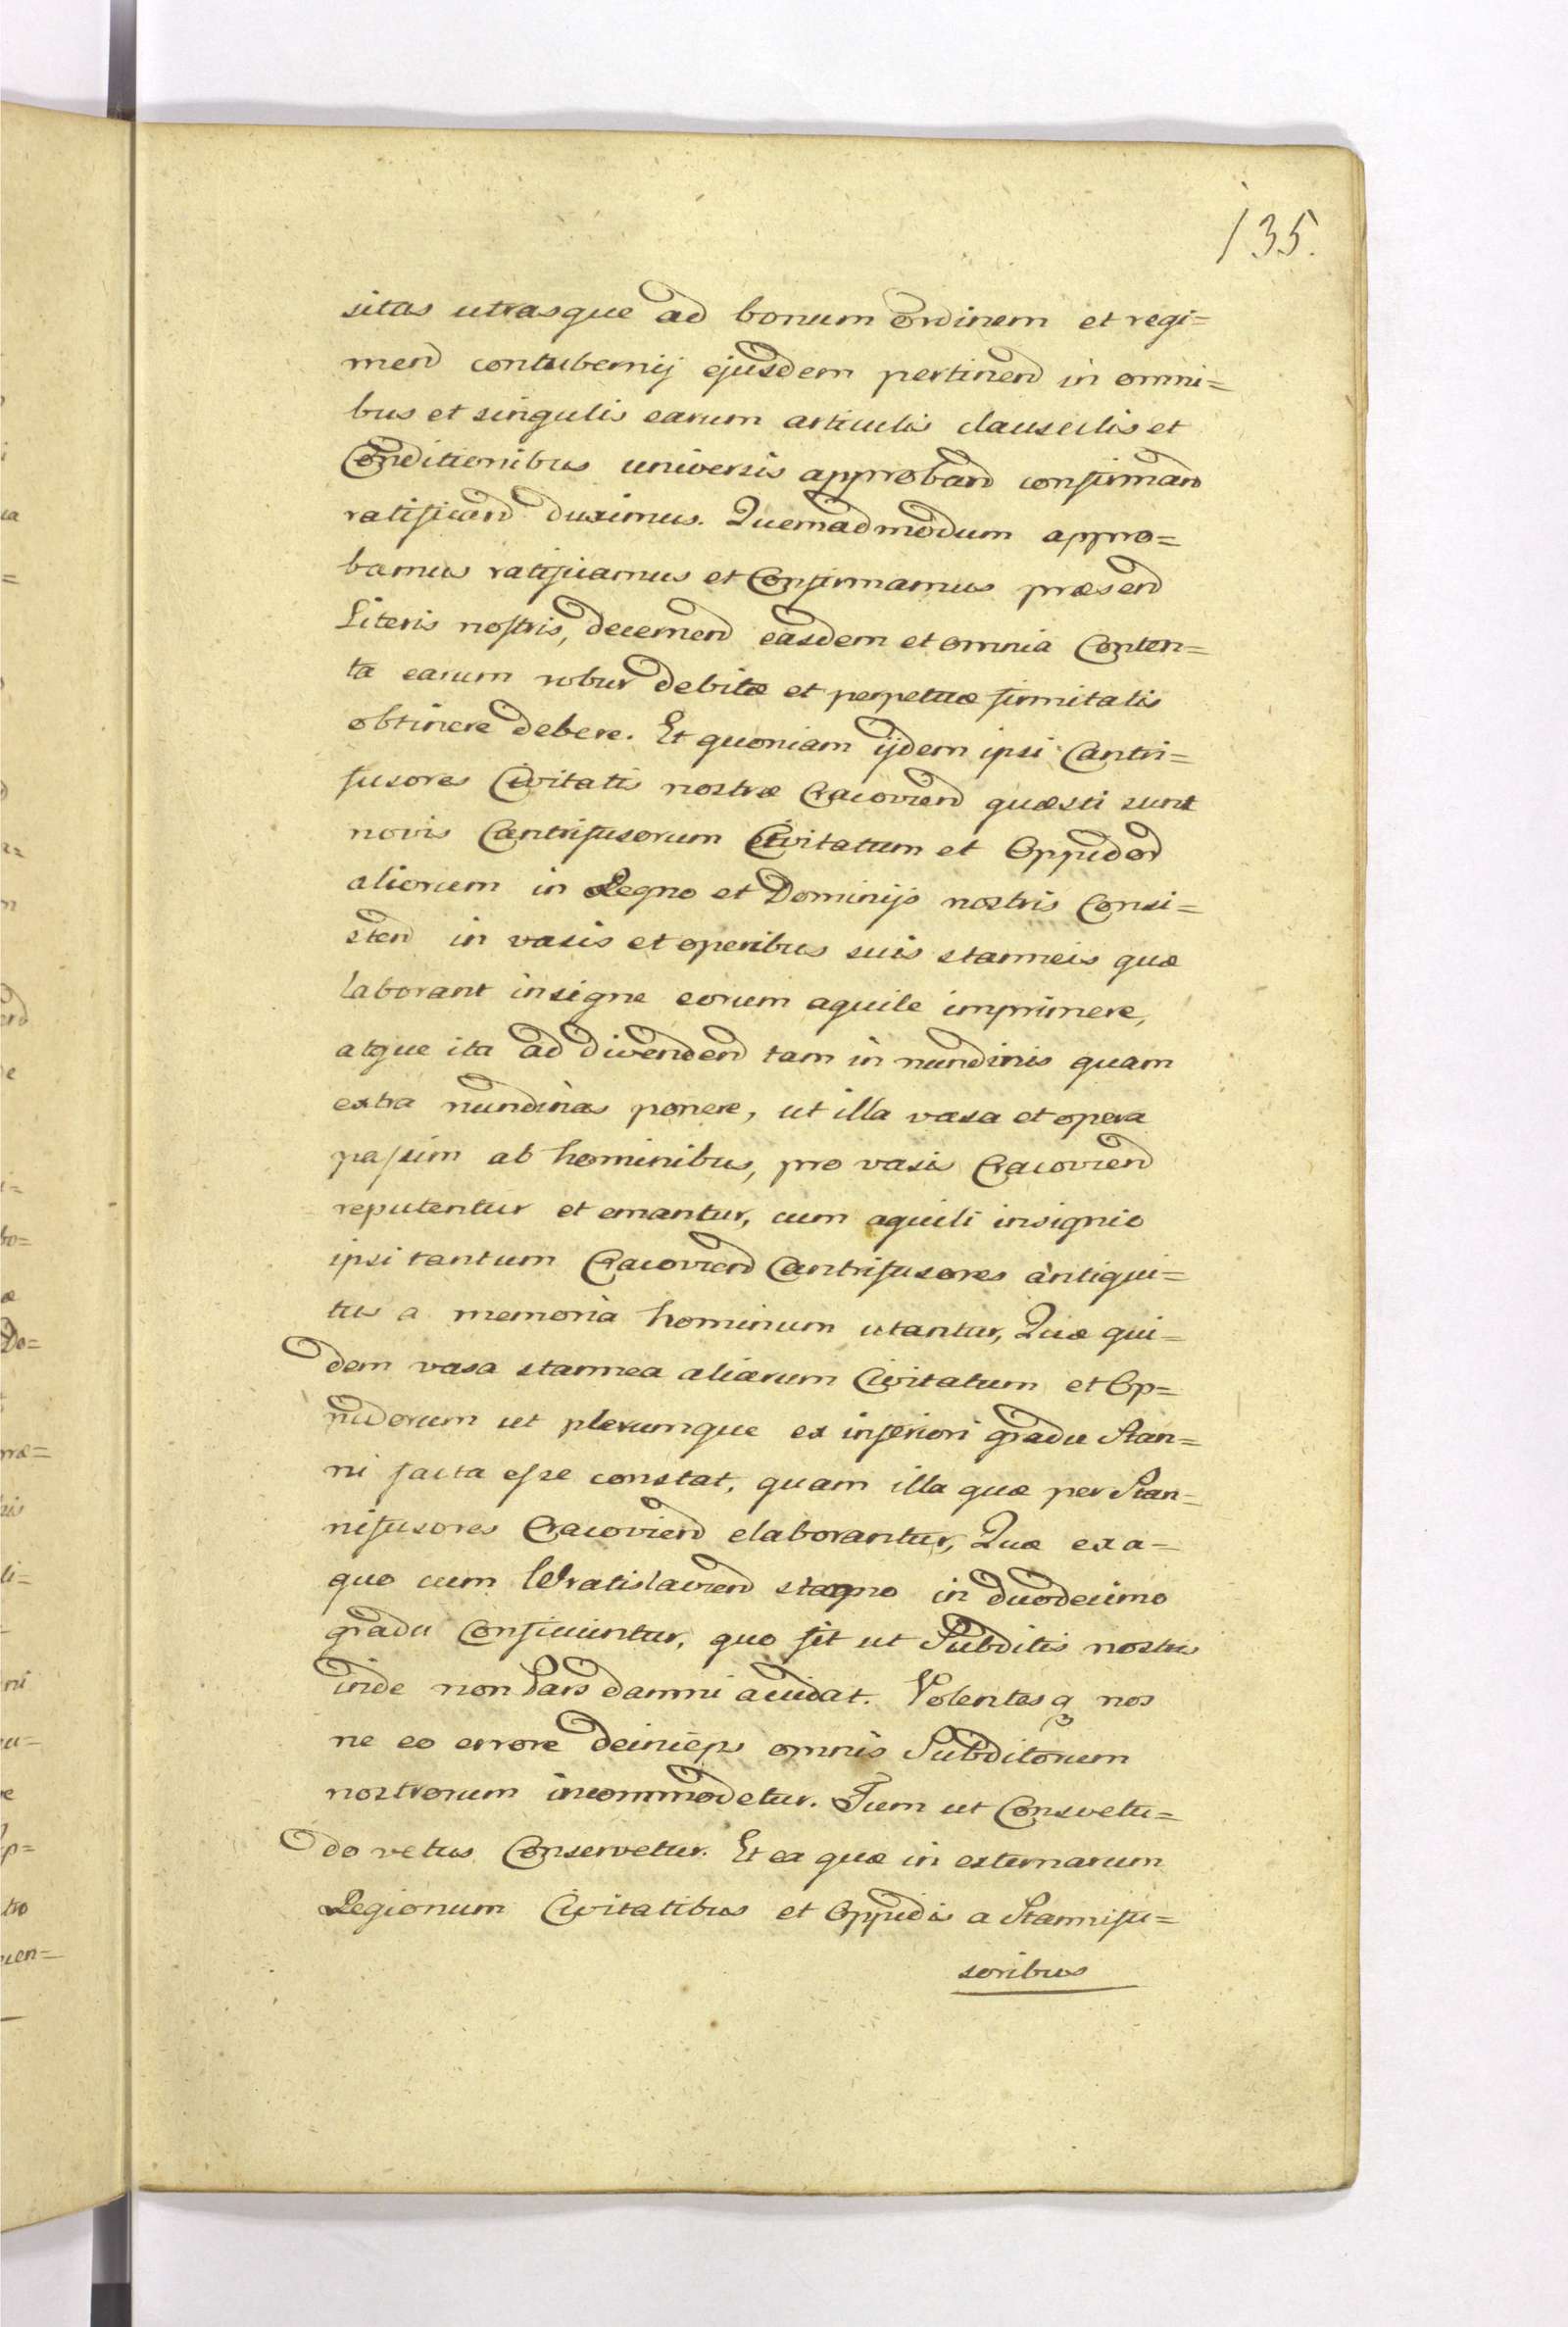 135.
sitas utrasque ad bonum ordinem et regi=
men contubernij ejusdem pertinen in omni=
bus et singulis earum articulis clausulis et
Conditionibus universis approban confirman
ratifican duximus. Quemadmodum appro=
bamus ratificamus et Confirmamus præsen
Literis nostris, decernen easdem et omnia Conten=
ta earum robur debitæ et perpetuæ firmitatis
obtinere debere. Et quoniam ijdem ipsi Cantri=
fusores Civitatis nostræ Cracovien quæsti sunt
novis Cantrifusorum Civitatum et Oppidor
aliorum in Regno et Dominijs nostris Consi=
sten in vasis et operibus suis stanneis quæ
laborant insigne eorum aquile imprimere,
atque ita ad divenden tam in nundinis quam
extra nundinas ponere, ut illa vasa et opera
passim ab hominibus, pro vasis Cracovien
reputentur et emantur, cum aquili insignio
ipsi tantum Cracovien Cantrifusores antiqui=
tus a memoria hominum utantur, Quæ qui=
dem vasa stannea aliarum Civitatum et Op=
pidorum ut plerumque ex inferiori gradu Stan=
ni facta esse constat, quam illa quæ per Stan=
nifusores Cracovien elaborantur, Quæ ex a=
quo cum Wratislavien stagno in duodecimo
gradu Conficiuntur, quo fit ut Subditis nostris
inde non Pars damni accidat. Volentes q nos
ne eo errore deinceps omnis Subditorum
nostrorum incommodetur. Tum ut Consvetu=
do vetus Conservetur. Et ea quæ in externarum
Regionum Civitatibus et Oppidis a Stannifu=
soribus